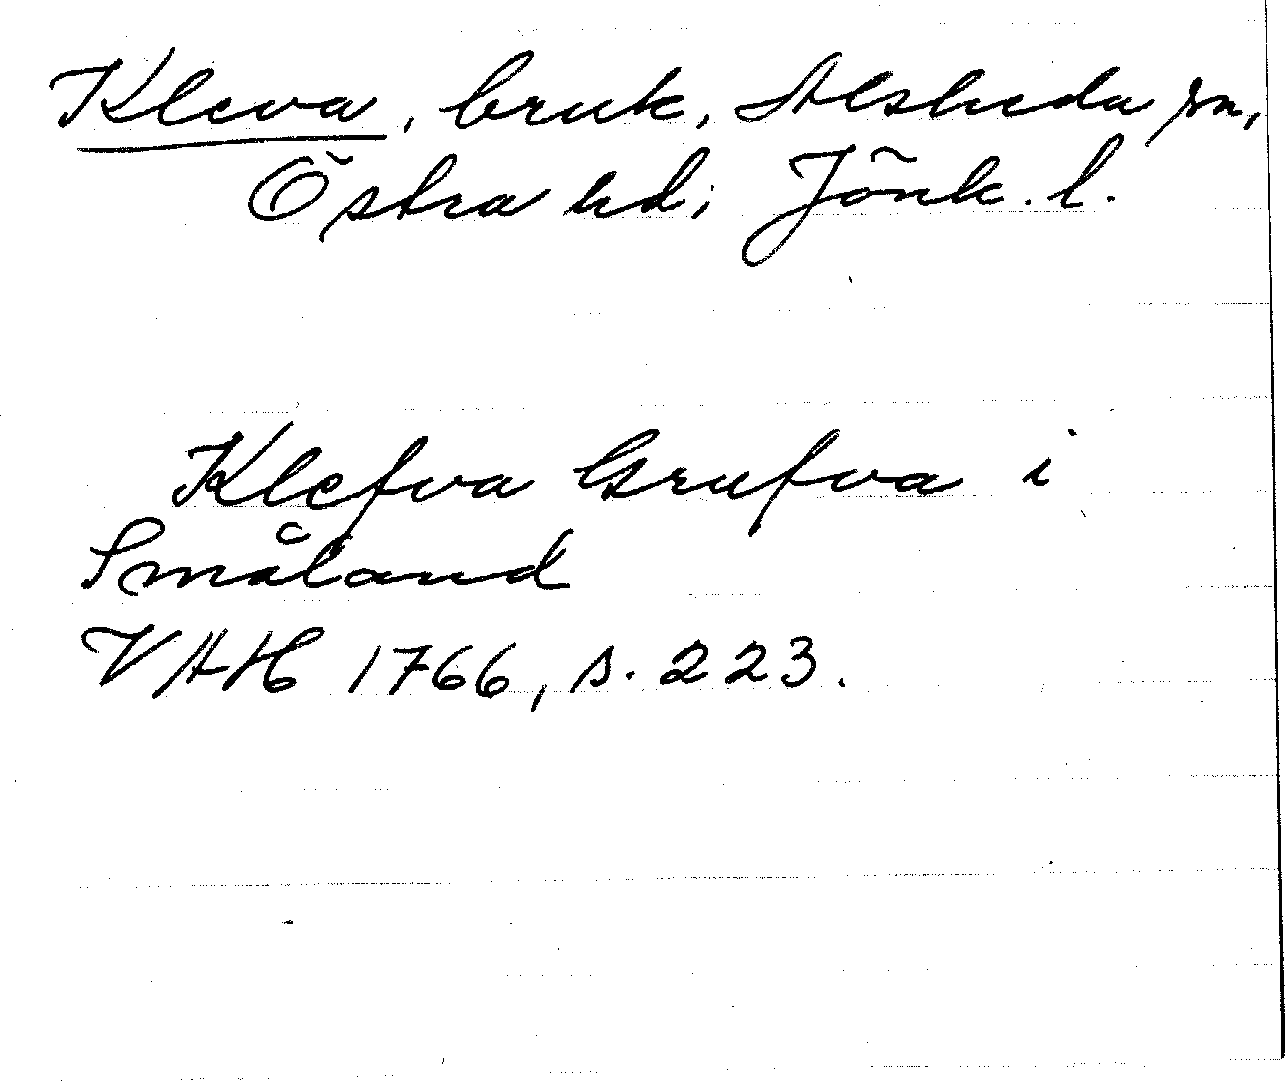 Kleva, bruk, Alsheda sn,
Östra hd; Jönk. l.
Klefva Grufva i
Småland
VAH 1766, s. 223.